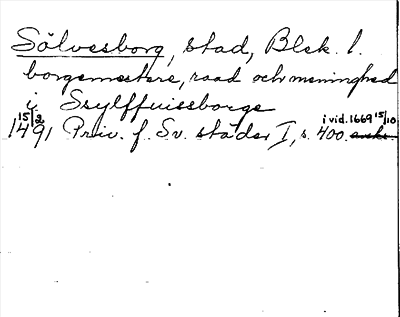 Sölvesborg, stad, Blek. l.
borgemestere, raad och meninghed
i Ssylffuissborge
15/2 1491 Priv. f. Sv. städer I, s. 400. i vid. 1669 15/10